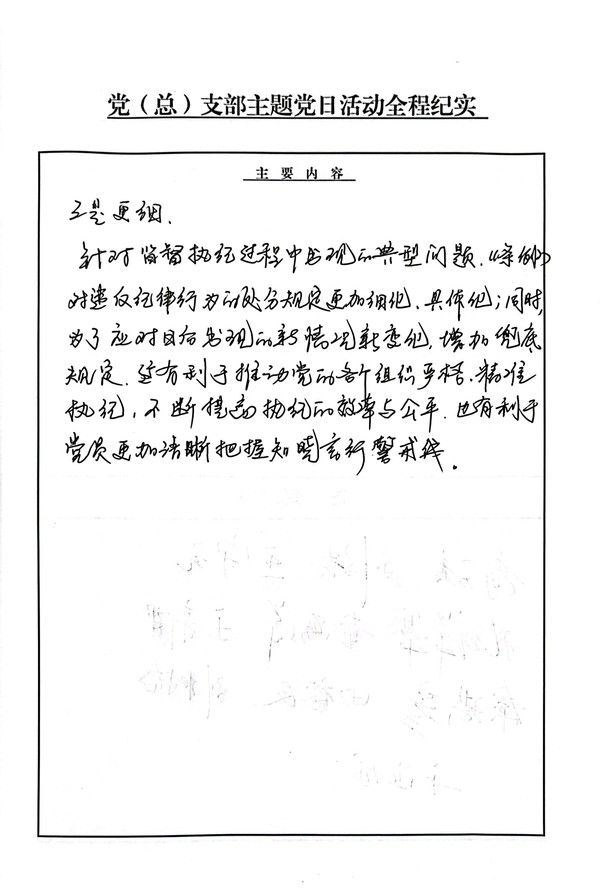 党（总）支部主题党日活动全程纪实
主要内容
三是更细.
针对监督执纪过程中出现的典型问题.《条例》
对违反纪律行为的处分规定更加细化、具体化；同时,
为了应对日后出现的新情况新变化, 增加兜底
规定. 这有利于推动党的各个组织严格、精准
执纪, 不断提高执纪的效率与公平. 也有利于
党员更加清晰把握知晓言行警戒线.